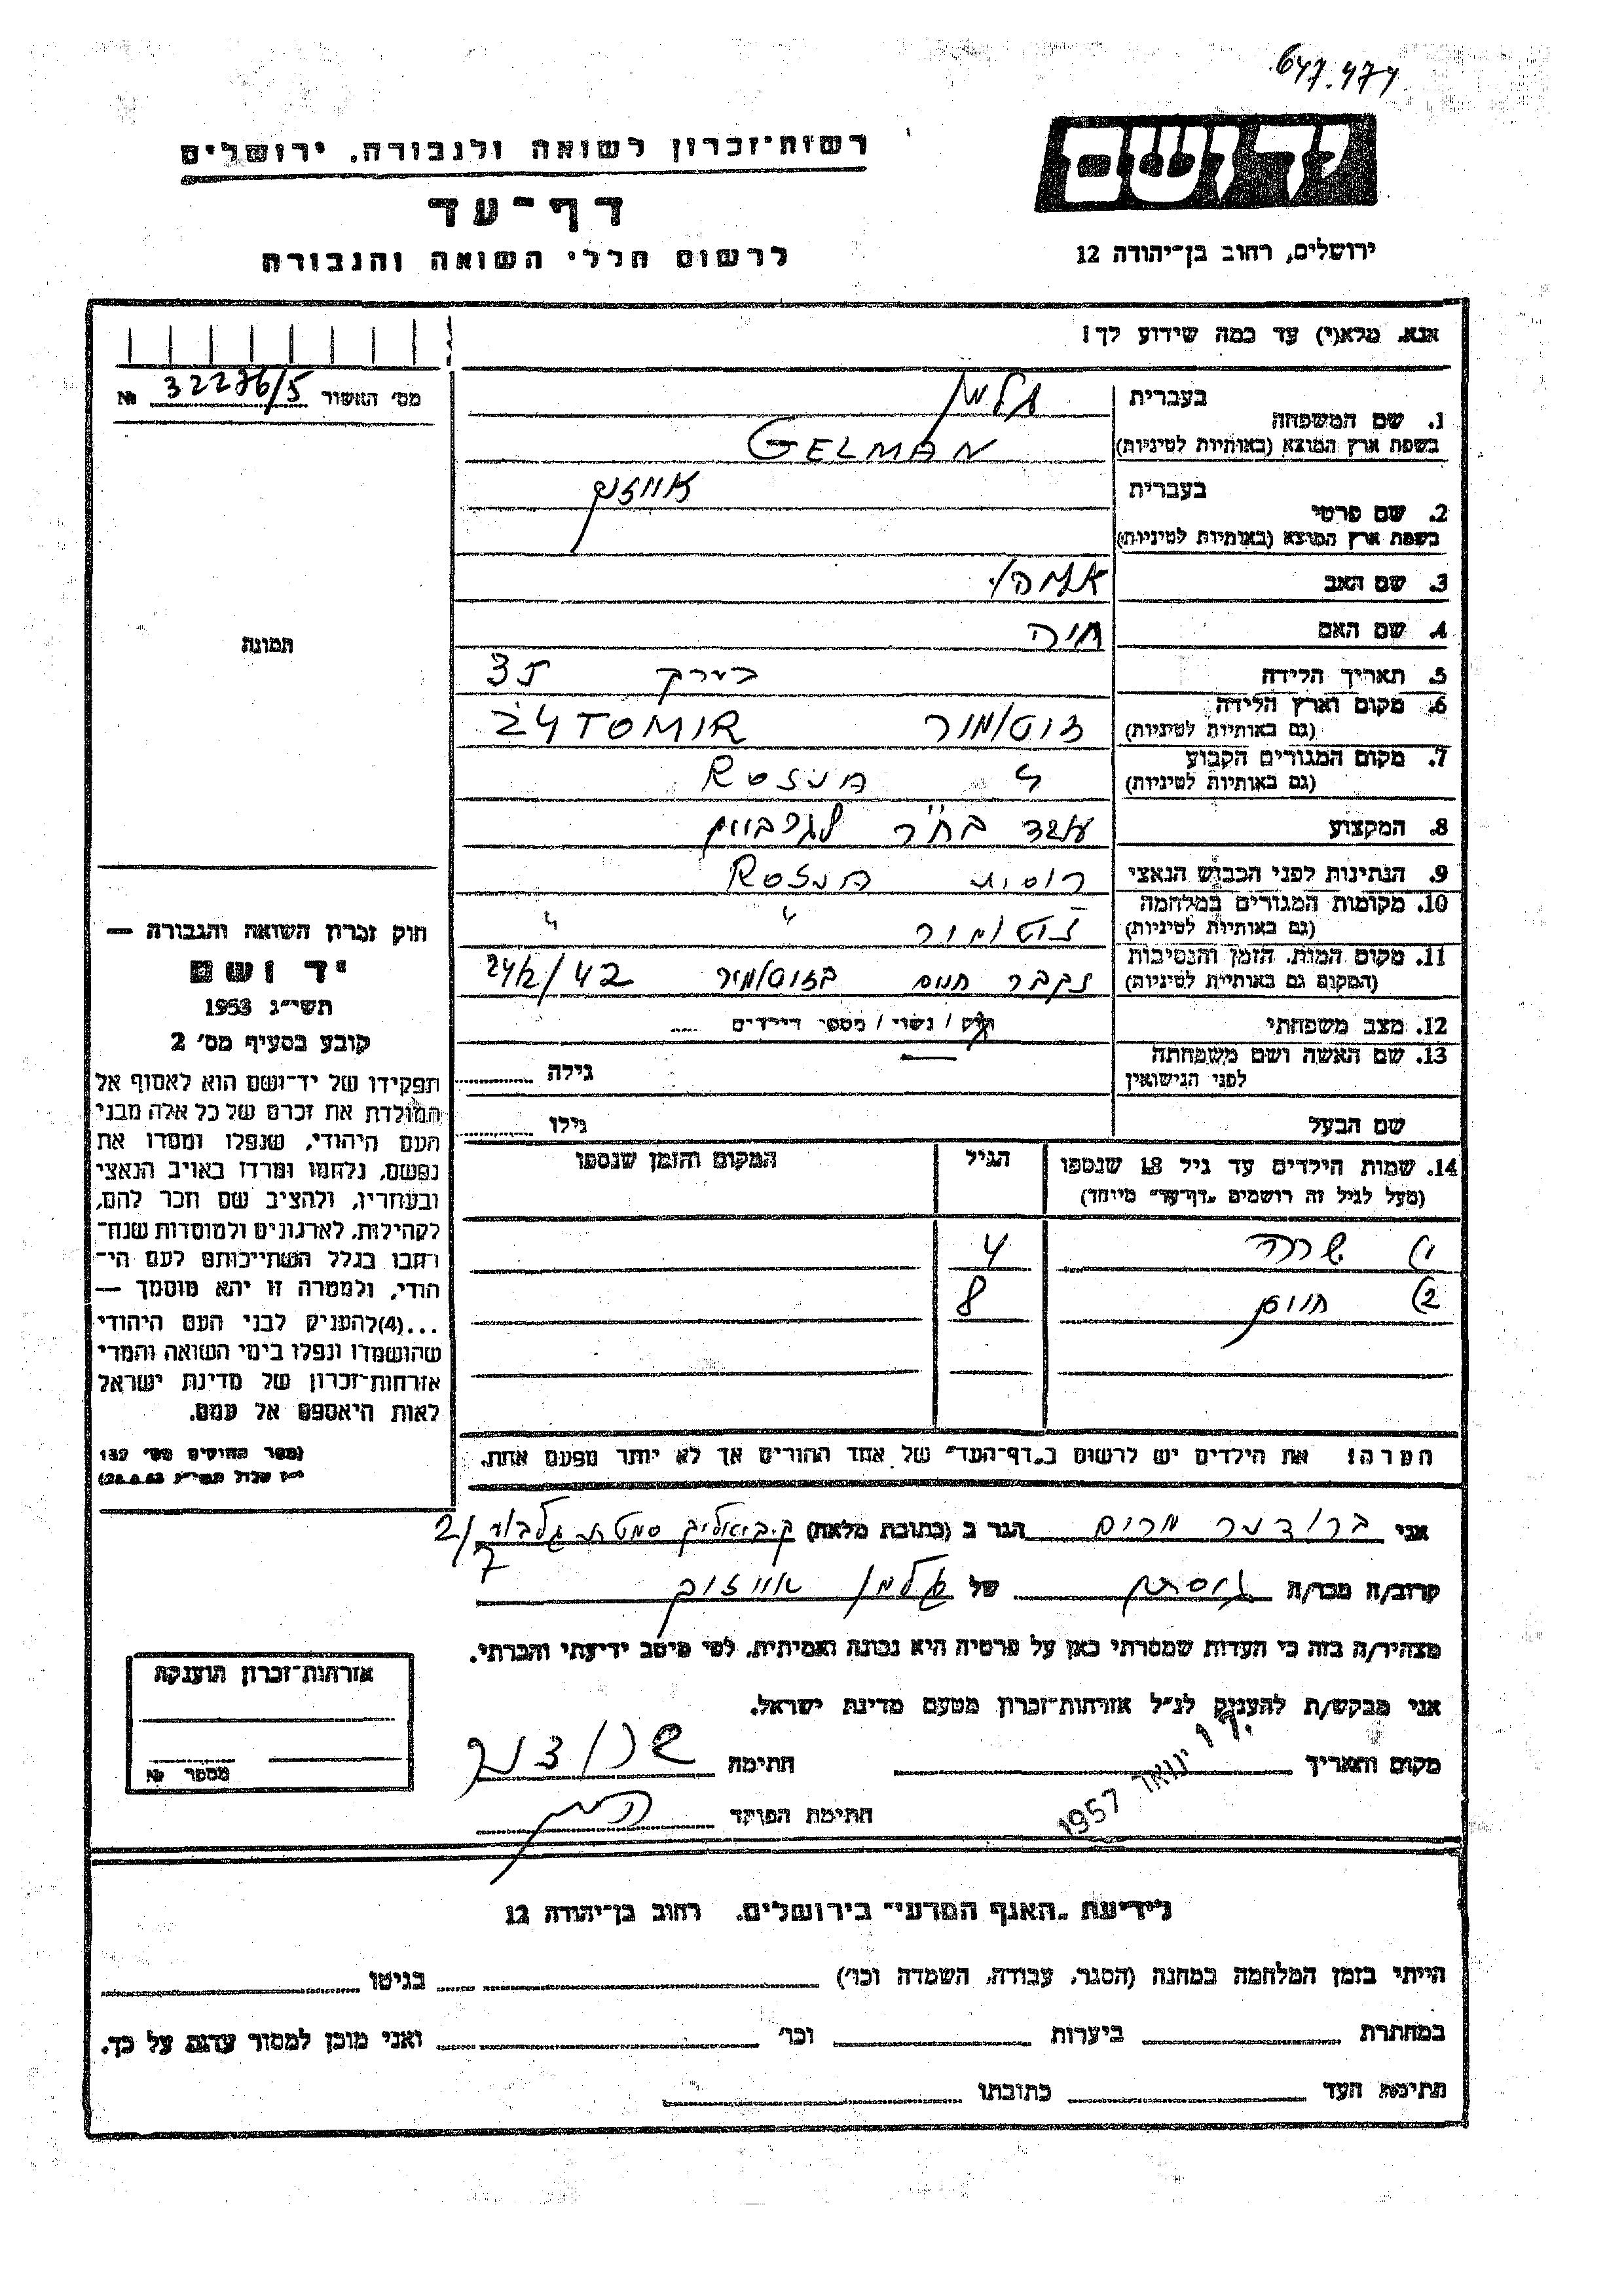 647.474
יד ושם
ירושלים, רחוב בן־יהודה 12
רשות־זכרון לשואה ולגבורה. ירושלים
דף־עד
לרשום חללי השואה והגבורה
אנא. מלא(י) עד כמה שידוע לך!
מס׳ האשור № 32276/5
1. שם המשפחה
בעברית גלמן
בשפת ארץ המוצא (באותיות לטיניות) GELMAN
2. שם פרטי
בעברית
בשפת ארץ המוצא (באותיות לטיניות)
3. שם האב
4. שם האם חיה
5. תאריך הלידה בערך 35
6. מקום וארץ הלידה
(גם באותיות לטיניות) ZYTOMIR
7. מקום המגורים הקבוע
(גם באותיות לטיניות)
8. המקצוע עובד בח״ר
9. הנתינות לפני הכבוש הנאצי
10. מקומות המגורים במלחמה
(גם באותיות לטיניות) " "
11. מקום המות. הזמן והנסיבות
(המקום גם באותיות לטיניות) 24/2/42
12. מצב משפחתי רוק / נשוי / מספר הילדים
13. שם האשה ושם משפחתה
לפני הנישואין גילה
שם הבעל גילו
תמונה
14. שמות הילדים עד גיל 18 שנספו
(מעל לגיל זה רושמים „דף־עד״ מיוחד)
הגיל
המקום והזמן שנספו
1) שרה 4
2) חיים 8
הערה! את הילדים יש לרשום ב„דף־העד״ של אחד ההורים אך לא יותר מפעם אחת.
חוק זכרון השואה והגבורה —
יד ושם
תשי״ג 1953
קובע בסעיף מס׳ 2
תפקידו של יד־ושם הוא לאסוף אל
המולדת את זכרם של כל אלה מבני
העם היהודי, שנפלו ומסרו את
נפשם, נלחמו ומרדו באויב הנאצי
ובעוזריו, ולהציב שם וזכר להם,
לקהילות, לארגונים ולמוסדות שנח־
רבו בגלל השתייכותם לעם הי־
הודי, ולמטרה זו יהא מוסמך —
...(4)להעניק לבני העם היהודי
שהושמדו ונפלו בימי השואה והמרי
אזרחות־זכרון של מדינת ישראל
לאות היאספם אל עמם.
(ספר החוקים מס׳ 132
אני מרים הגר ב (כתובת מלאה) קביאליק 2/7
קרוב/ה מכר/ה של גלמן
מצהיר/ה בזה כי העדות שמסרתי כאן על פרטיה היא נכונה ואמיתית, לפי מיטב ידיעתי והכרתי.
אני מבקש/ת להעניק לנ״ל אזרחות־זכרון מטעם מדינת ישראל.
מקום ותאריך ינואר 1957 חתימה
חתימת הפוקד
אזרחות־זכרון הוענקה
מספר №
לידיעת „האגף המדעי״ בירושלים. רחוב בן־יהודה 12
הייתי בזמן המלחמה במחנה (הסגר, עבודה, השמדה וכו׳) בגיטו
במחתרת ביערות וכו׳ ואני מוכן למסור עדות על כך.
חתימת העד כתובתו